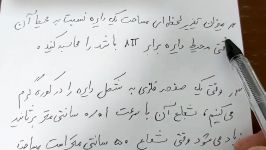 ۲- میزان تغییر لحظه‌ای مساحت یک دایره نسبت به محیط آن
وقتی محیط دایره برابر ۸π باشد را محاسبه کنید.
۳- وقتی یک صفحه فلزی به شکل دایره را در کوره گرم
می‌کنیم، شعاع آن با سرعت ۰.۰۱ سانتی‌متر بر ثانیه
زیاد می‌شود وقتی شعاع ۵۰ سانتی‌متر است مساحت